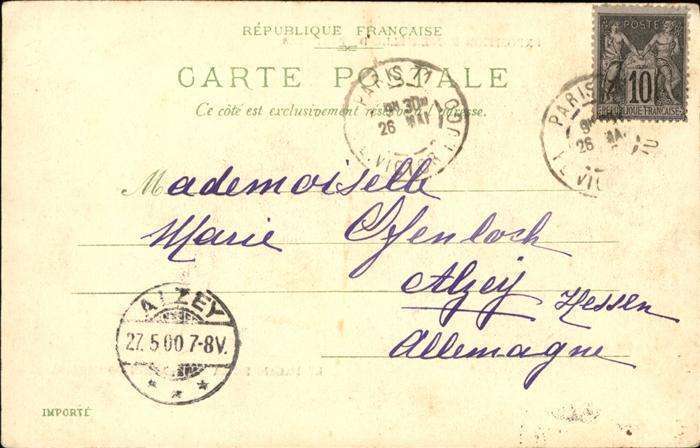 RÉPUBLIQUE FRANÇAISE
CARTE POSTALE
Ce côté est exclusivement réservé à l'adresse.
POSTE
10
RÉPUBLIQUE FRANÇAISE
PARIS
26 MAI
PARIS
26
Mademoiselle
Marie Ofenloch
Alzey Hessen
Allemagne
ALZEY
27.5.00 7-8V.
* * *
IMPORTÉ